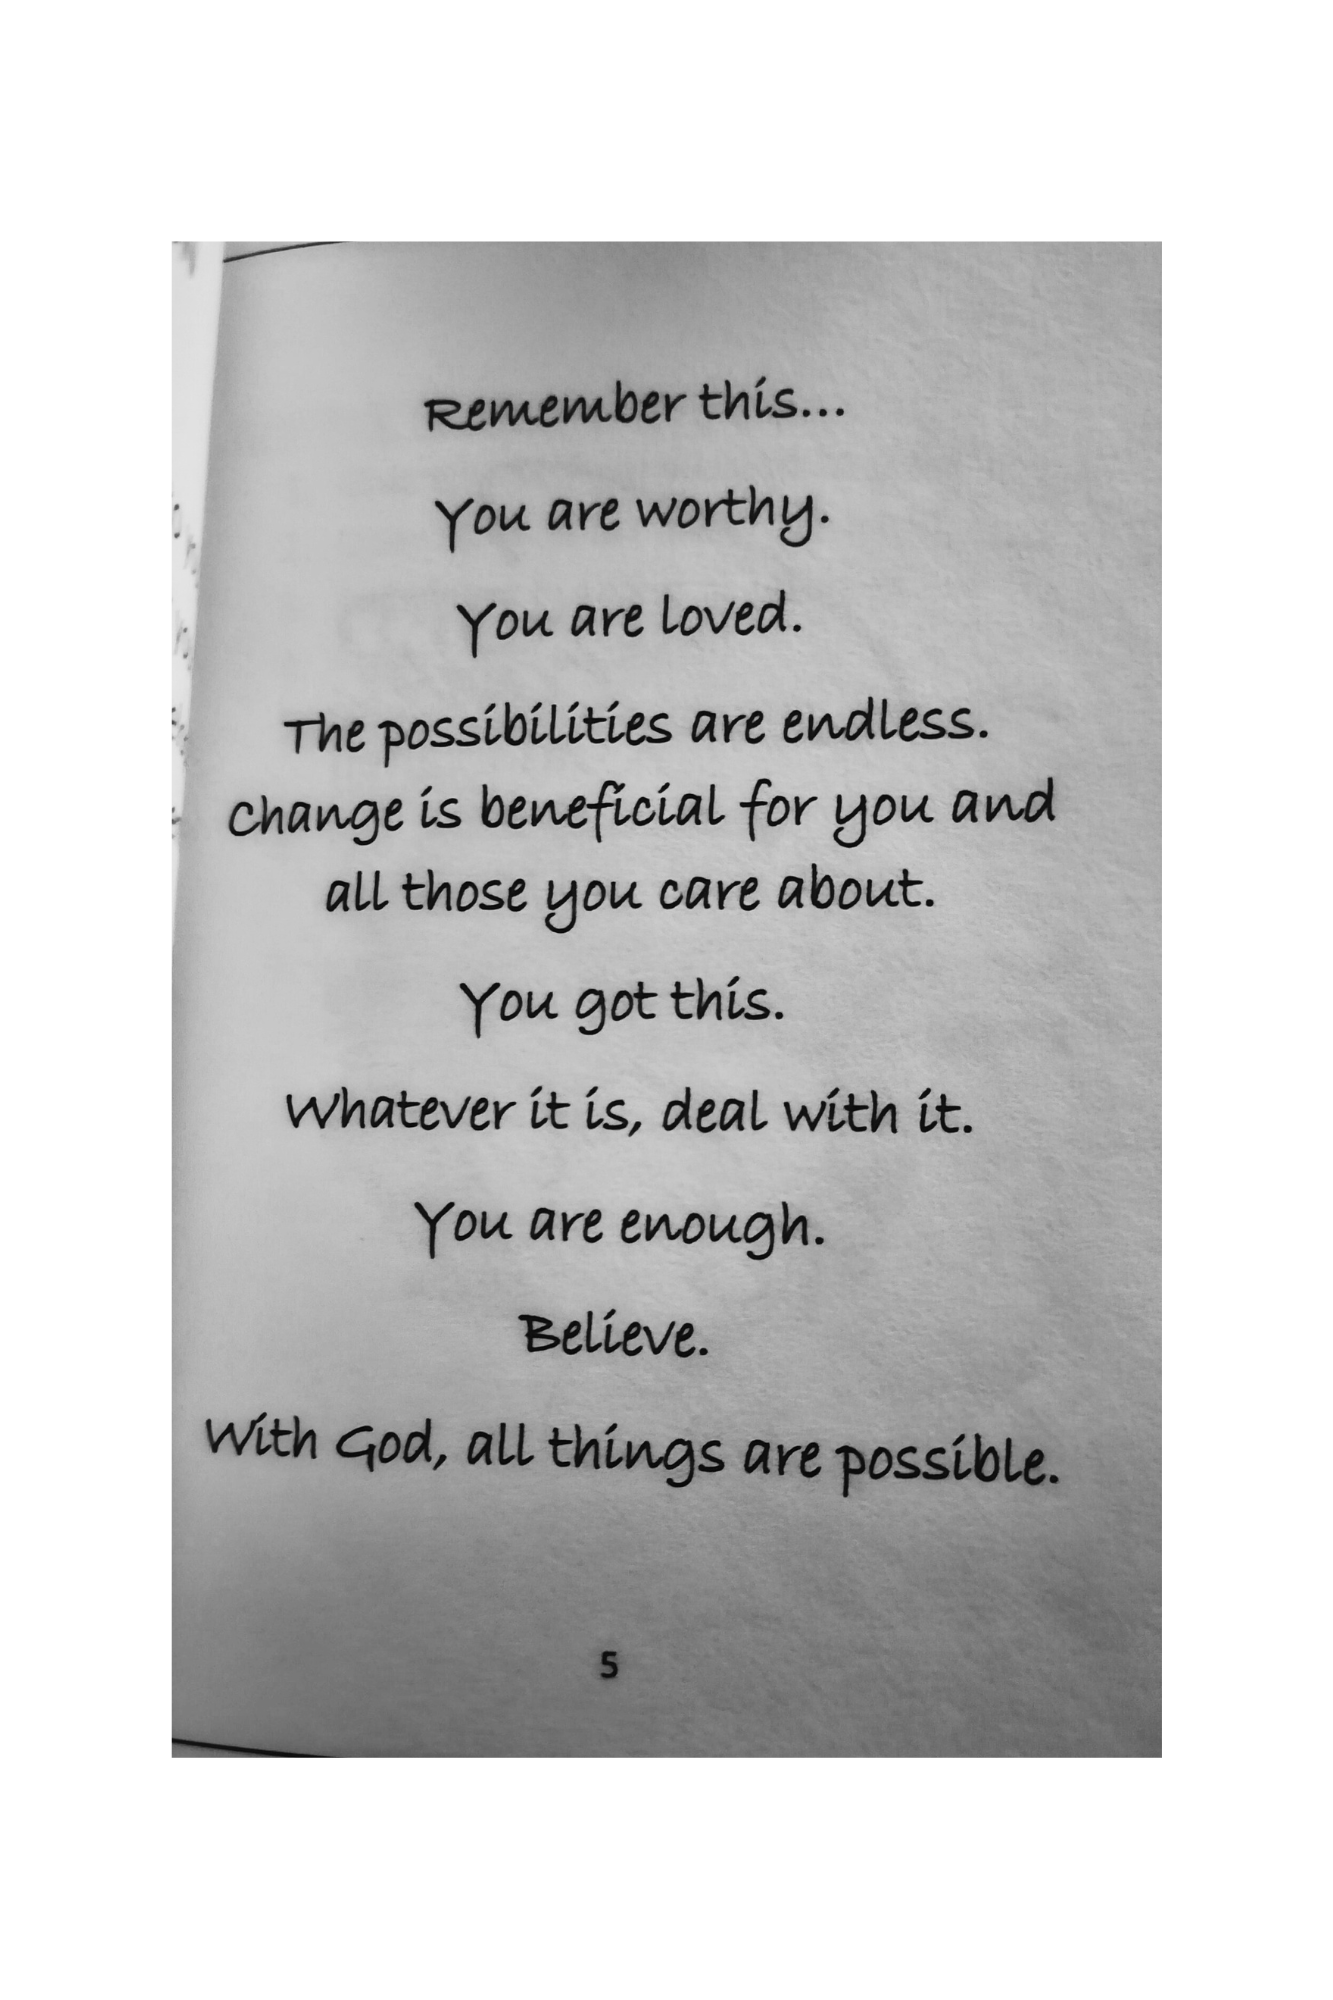 Remember this...
You are worthy.
You are loved.
The possibilities are endless.
Change is beneficial for you and
all those you care about.
You got this.
Whatever it is, deal with it.
You are enough.
Believe.
With God, all things are possible.
5